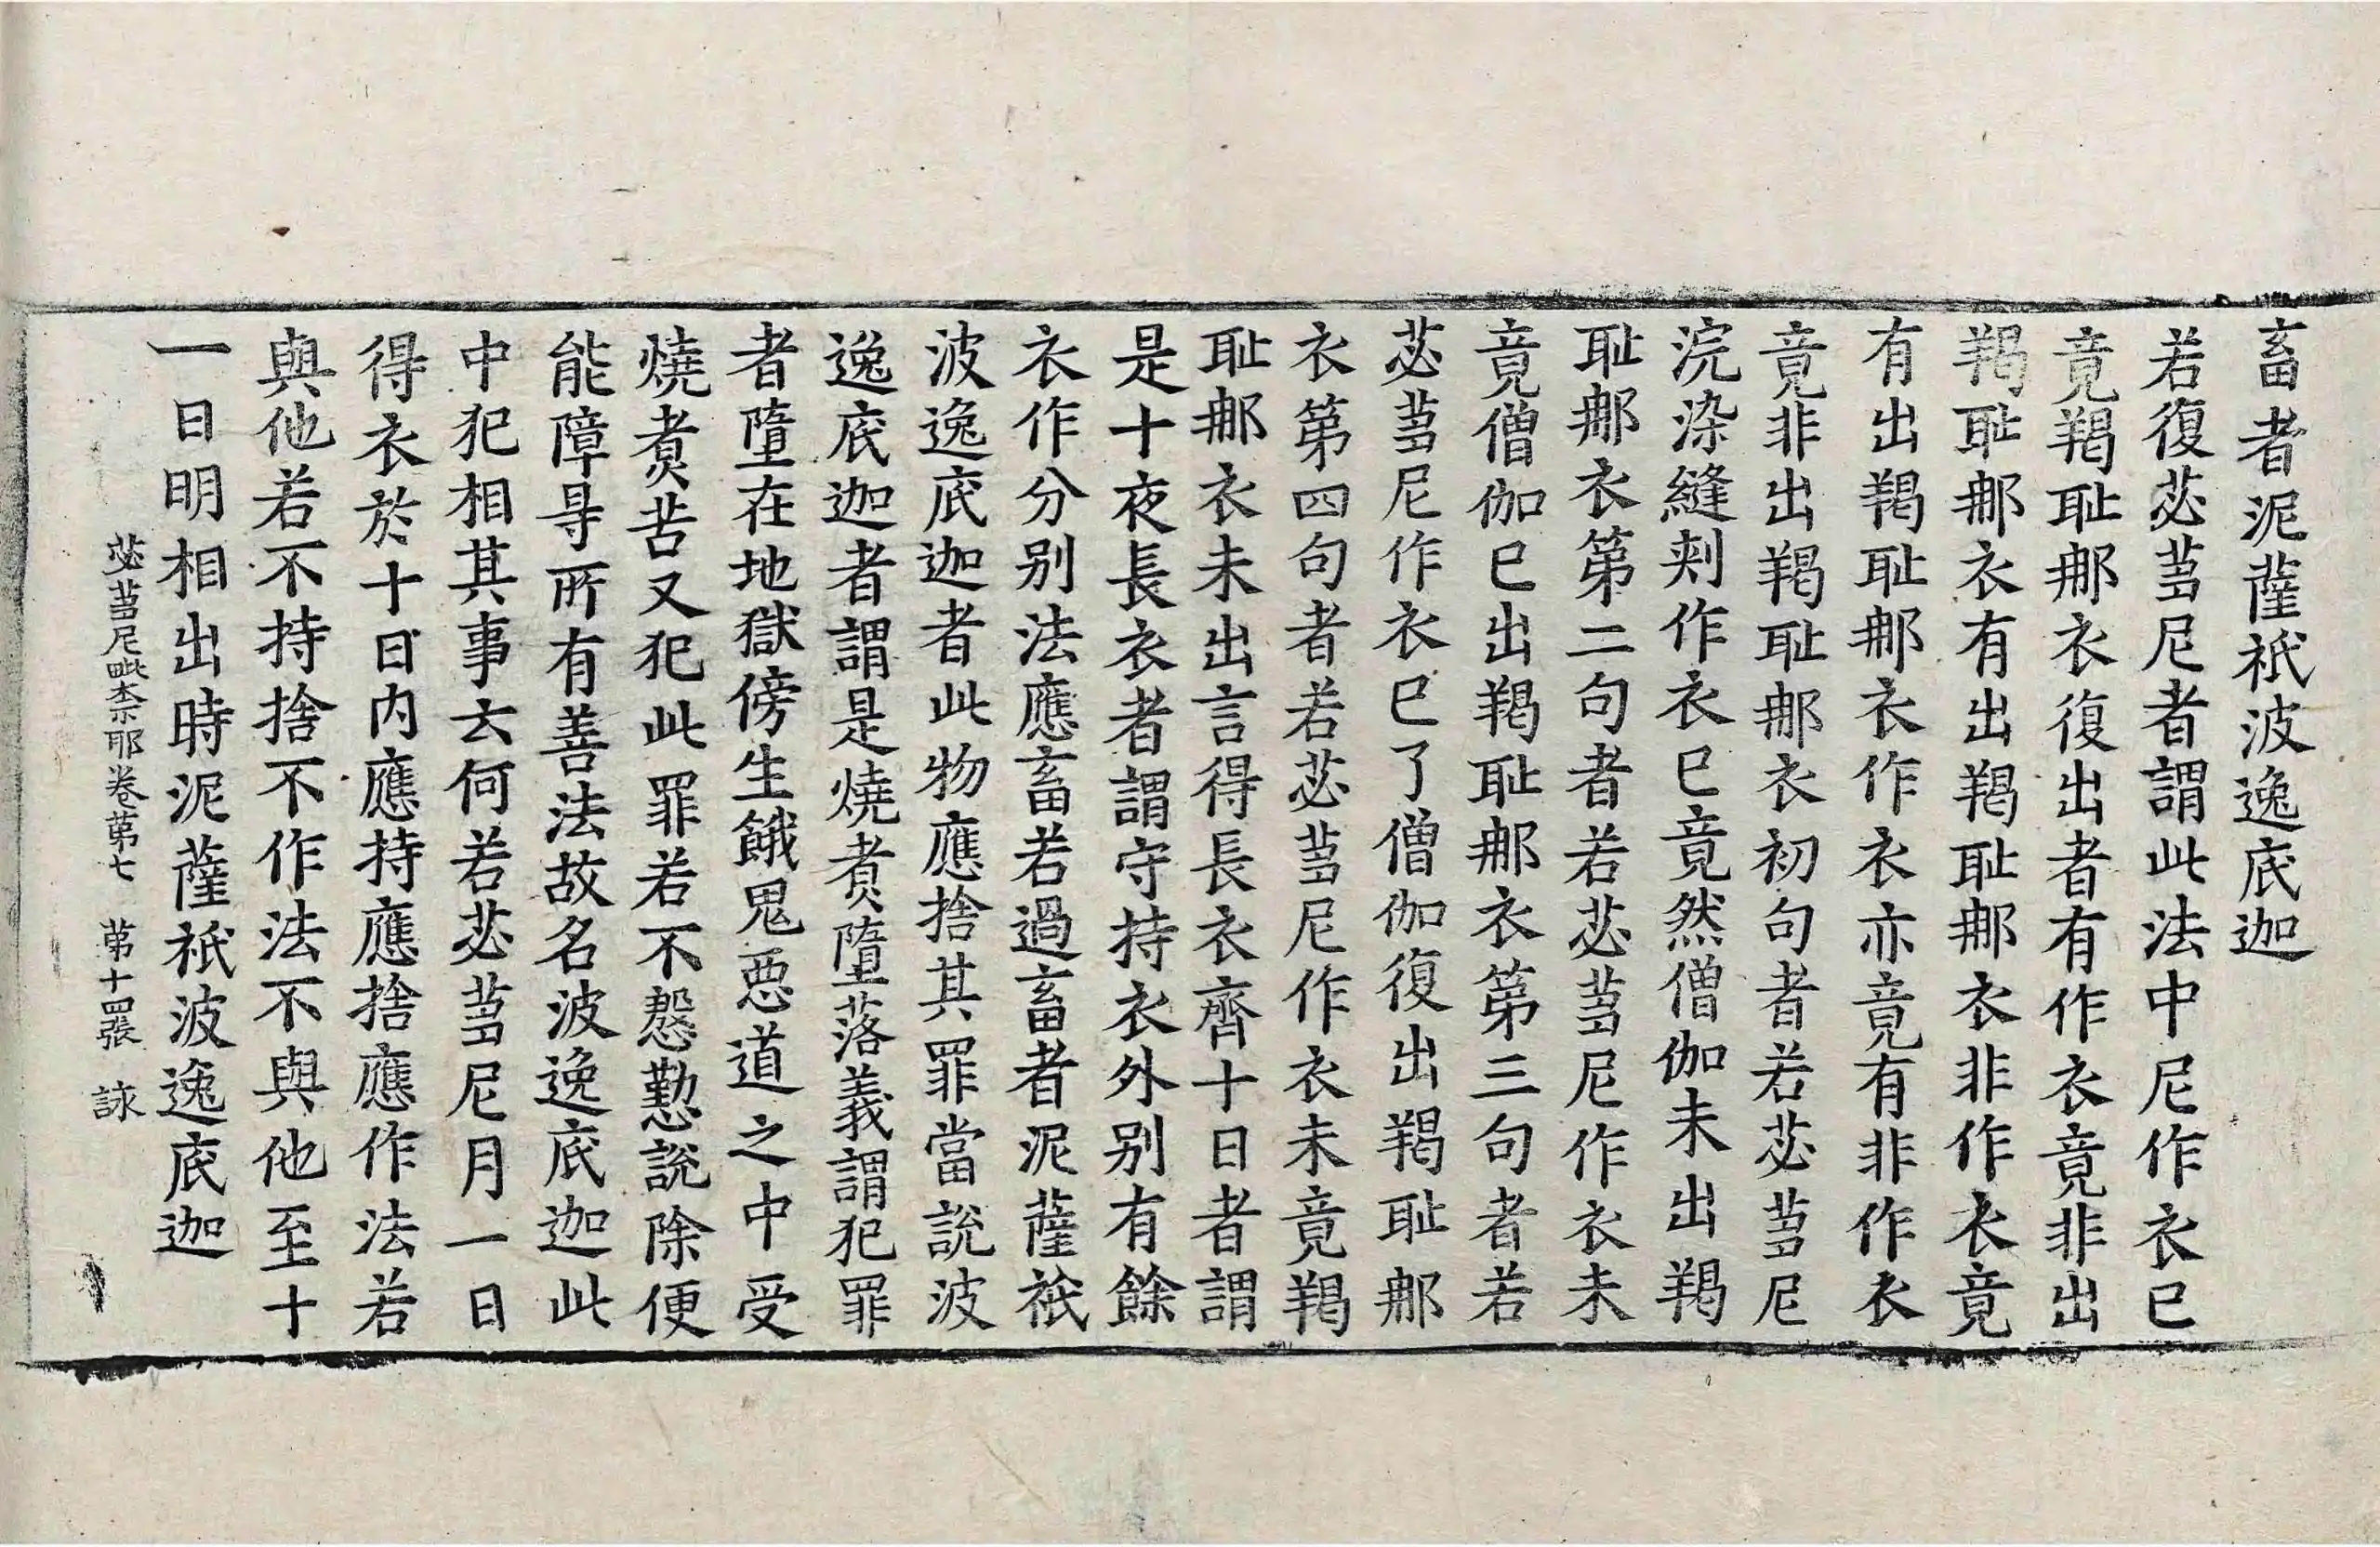 畜者泥薩祇波逸底迦
若復苾蒭尼者謂此法中尼作衣已
竟羯恥那衣復出者有作衣竟非出
羯恥那衣有出羯恥那衣非作衣竟
有出羯恥那衣作衣亦竟有非作衣
竟非出羯恥那衣初句者若苾蒭尼
浣染縫刾作衣已竟然僧伽未出羯
恥那衣第二句者若苾蒭尼作衣未
竟僧伽已出羯恥那衣第三句者若
苾蒭尼作衣已了僧伽復出羯恥那
衣第四句者若苾蒭尼作衣未竟羯
恥那衣未出言得長衣齊十日者謂
是十夜長衣者謂守持衣外別有餘
衣作分別法應畜若過畜者泥薩祇
波逸底迦者此物應捨其罪當說波
逸底迦者謂是燒煑墮落義謂犯罪
者墮在地獄傍生餓鬼惡道之中受
燒煑苦又犯此罪若不慇懃說除便
能障㝵所有善法故名波逸底迦此
中犯相其事云何若苾蒭尼月一日
得衣於十日內應持應捨應作法若
與他若不持捨不作法不與他至十
一日明相出時泥薩祇波逸底迦
苾蒭尼毗奈耶卷第七　第十四張　詠